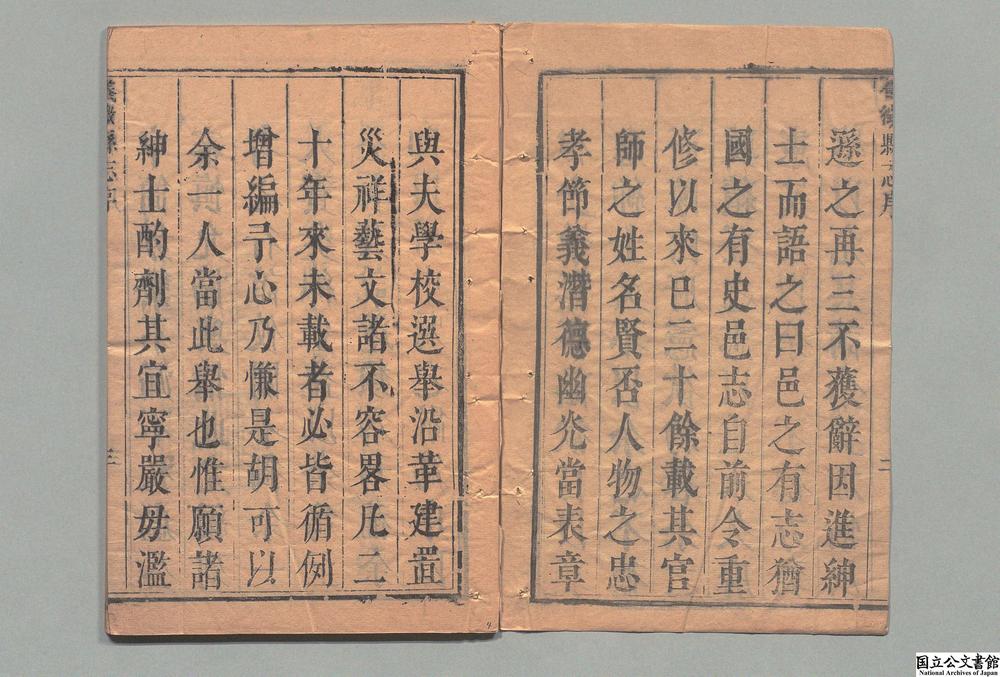 遜之再三不獲辭因進紳
士而語之曰邑之有志猶
國之有史邑志自前令重
修以來巳二十餘載其官
師之姓名賢否人物之忠
孝節義潛德幽光當表章
二
與夫學校選舉沿革建置
災祥藝文諸不容畧凡二
十年來未載者必皆循例
增編予心乃慊是胡可以
余一人當此舉也惟願諸
紳士酌劑其宜寧嚴毋濫
縣志序
三
国立公文書館
National Archives of Japan